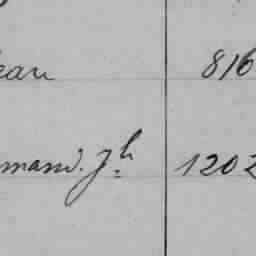 ean 816
mand. Jh 1202